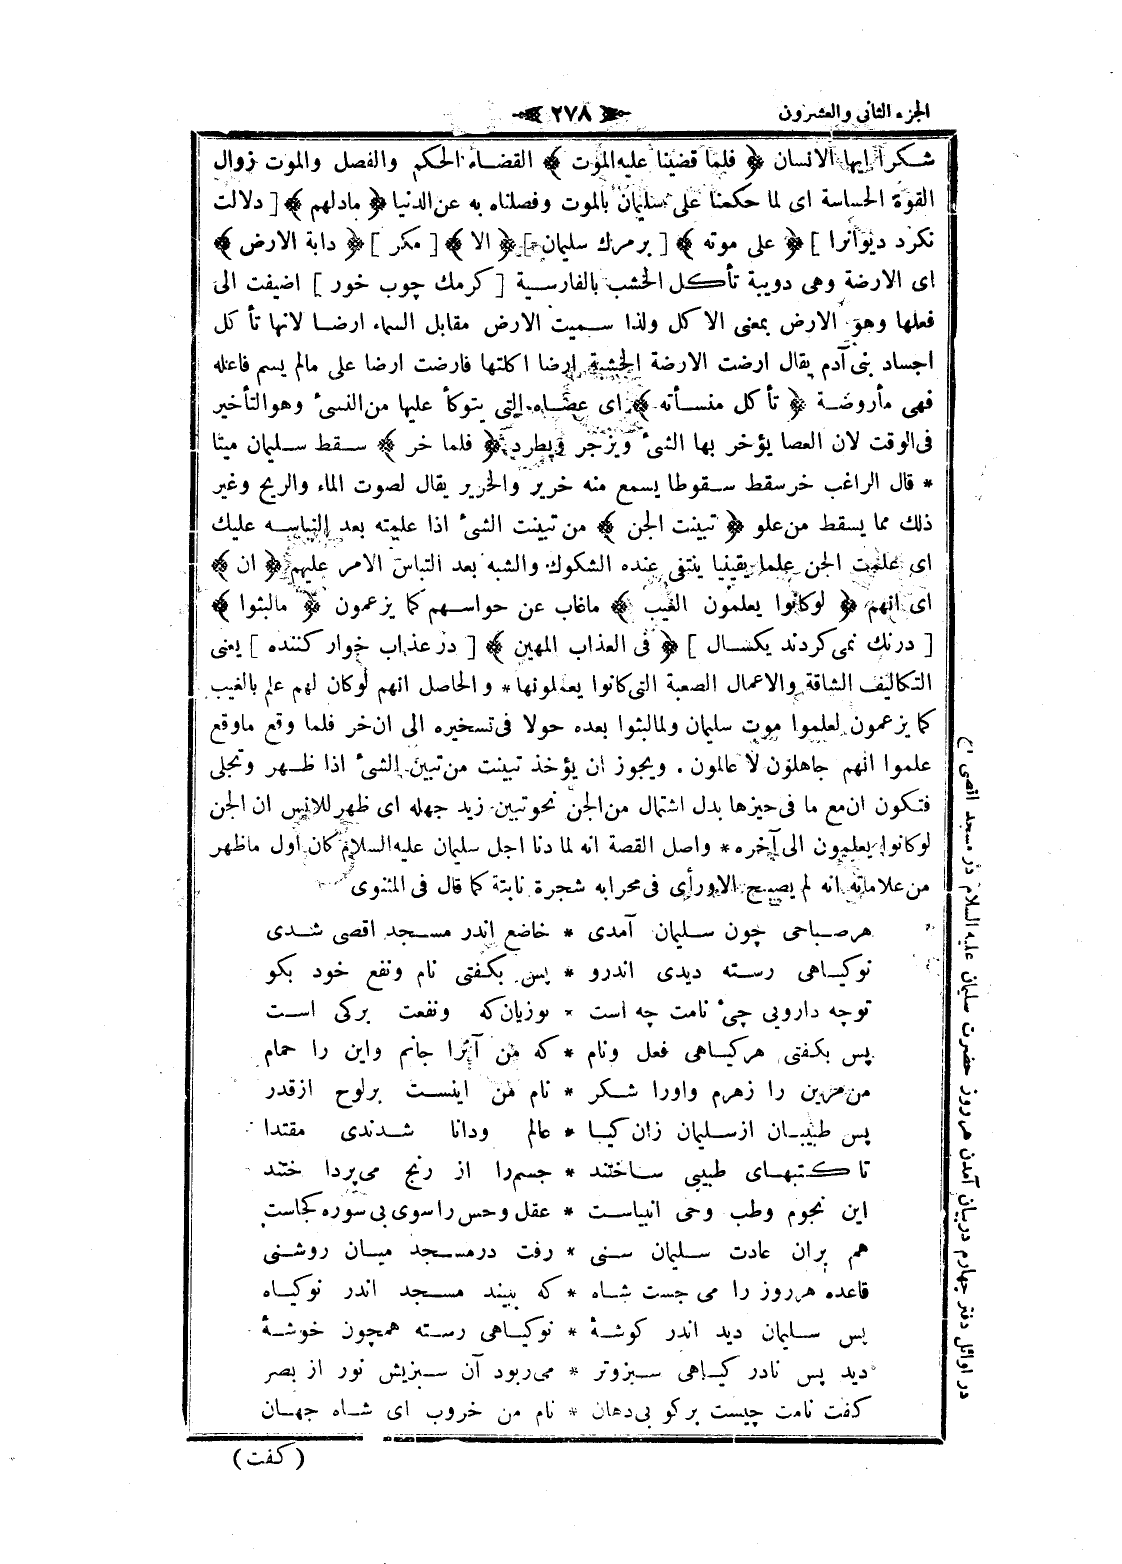 الجزء الثانى والعشرون
٢٧٨
شكرا ايها الانسان ﴿ فلما قضينا عليه الموت ﴾ القضاء الحكم والفصل والموت زوال
القوة الحساسة اى لما حكمنا على سليمان بالموت وفصلناه به عن الدنيا ﴿ مادلهم ﴾ [ دلالت
نكرد ديوانرا ] ﴿ على موته ﴾ [ برمرك سليمان ] ﴿ الا ﴾ [ مكر ] ﴿ دابة الارض ﴾
اى الارضة وهى دويبة تأكل الخشب بالفارسية [ كرمك چوب خور ] اضيفت الى
فعلها وهو الارض بمعنى الاكل ولذا سميت الارض مقابل السماء ارضا لانها تأكل
اجساد بنى آدم يقال ارضت الارضة الخشبة ارضا اكلتها فارضت ارضا على مالم يسم فاعله
فهى مأروضة ﴿ تأكل منسأته ﴾ اى عصاه التى يتوكأ عليها من النسئ وهو التأخير
فى الوقت لان العصا يؤخر بها الشئ ويزجر ويطرد ﴿ فلما خر ﴾ سقط سليمان ميتا
* قال الراغب خر سقط سقوطا يسمع منه خرير والخرير يقال لصوت الماء والريح وغير
ذلك مما يسقط من علو ﴿ تبينت الجن ﴾ من تبينت الشئ اذا علمته بعد التباسه عليك
اى علمت الجن علما يقينيا ينتفى عنده الشكوك والشبه بعد التباس الامر عليهم ﴿ ان ﴾
اى انهم ﴿ لوكانوا يعلمون الغيب ﴾ ماغاب عن حواسهم كما يزعمون ﴿ مالبثوا ﴾
[ درنك نمى كردند يكسال ] ﴿ فى العذاب المهين ﴾ [ در عذاب خوار كننده ] يعنى
التكاليف الشاقة والاعمال الصعبة التى كانوا يعملونها * والحاصل انهم لوكان لهم علم بالغيب
كما يزعمون لعلموا موت سليمان ولمالبثوا بعده حولا فى تسخيره الى ان خر فلما وقع ماوقع
علموا انهم جاهلون لا عالمون . ويجوز ان يؤخذ تبينت من تبين الشئ اذا ظهر وتجلى
فتكون ان مع ما فى حيزها بدل اشتمال من الجن نحو تبين زيد جهله اى ظهر للانس ان الجن
لوكانوا يعلمون الى آخره * واصل القصة انه لما دنا اجل سليمان عليه السلام كان اول ماظهر
من علاماته انه لم يصبح الا ورأى فى محرابه شجرة نابتة كما قال فى المثنوى
هر صباحى چون سليمان آمدى * خاضع اندر مسجد اقصى شدى
نوكياهى رسته ديدى اندرو * پس بكفتى نام ونفع خود بكو
توچه دارويى چئ نامت چه است * توزيان كه ونفعت بركى است
پس بكفتى هركياهى فعل ونام * كه من آنرا جانم واين را حمام
من مرين را زهرم واورا شكر * نام من اينست برلوح از قدر
پس طبيبان از سليمان زان كيا * عالم ودانا شدندى مقتدا
تا كتبهاى طبيبى ساختند * جسم را از رنج مى پردا ختند
اين نجوم وطب وحى انبياست * عقل وحس را سوى بى سوره كجاست
هم بران عادت سليمان سنى * رفت در مسجد ميان روشنى
قاعده هر روز را مى جست شاه * كه ببيند مسجد اندر نوكياه
پس سليمان ديد اندر كوشۀ * نوكياهى رسته همچون خوشۀ
ديد پس نادر كياهى سبزوتر * مى ربود آن سبزيش نور از بصر
كفت نامت چيست بركو بى دهان * نام من خروب اى شاه جهان
( كفت )
در اوائل دفتر چهارم در بيان آمدن هر روز حضرت سليمان عليه السلام در مسجد اقصى الخ